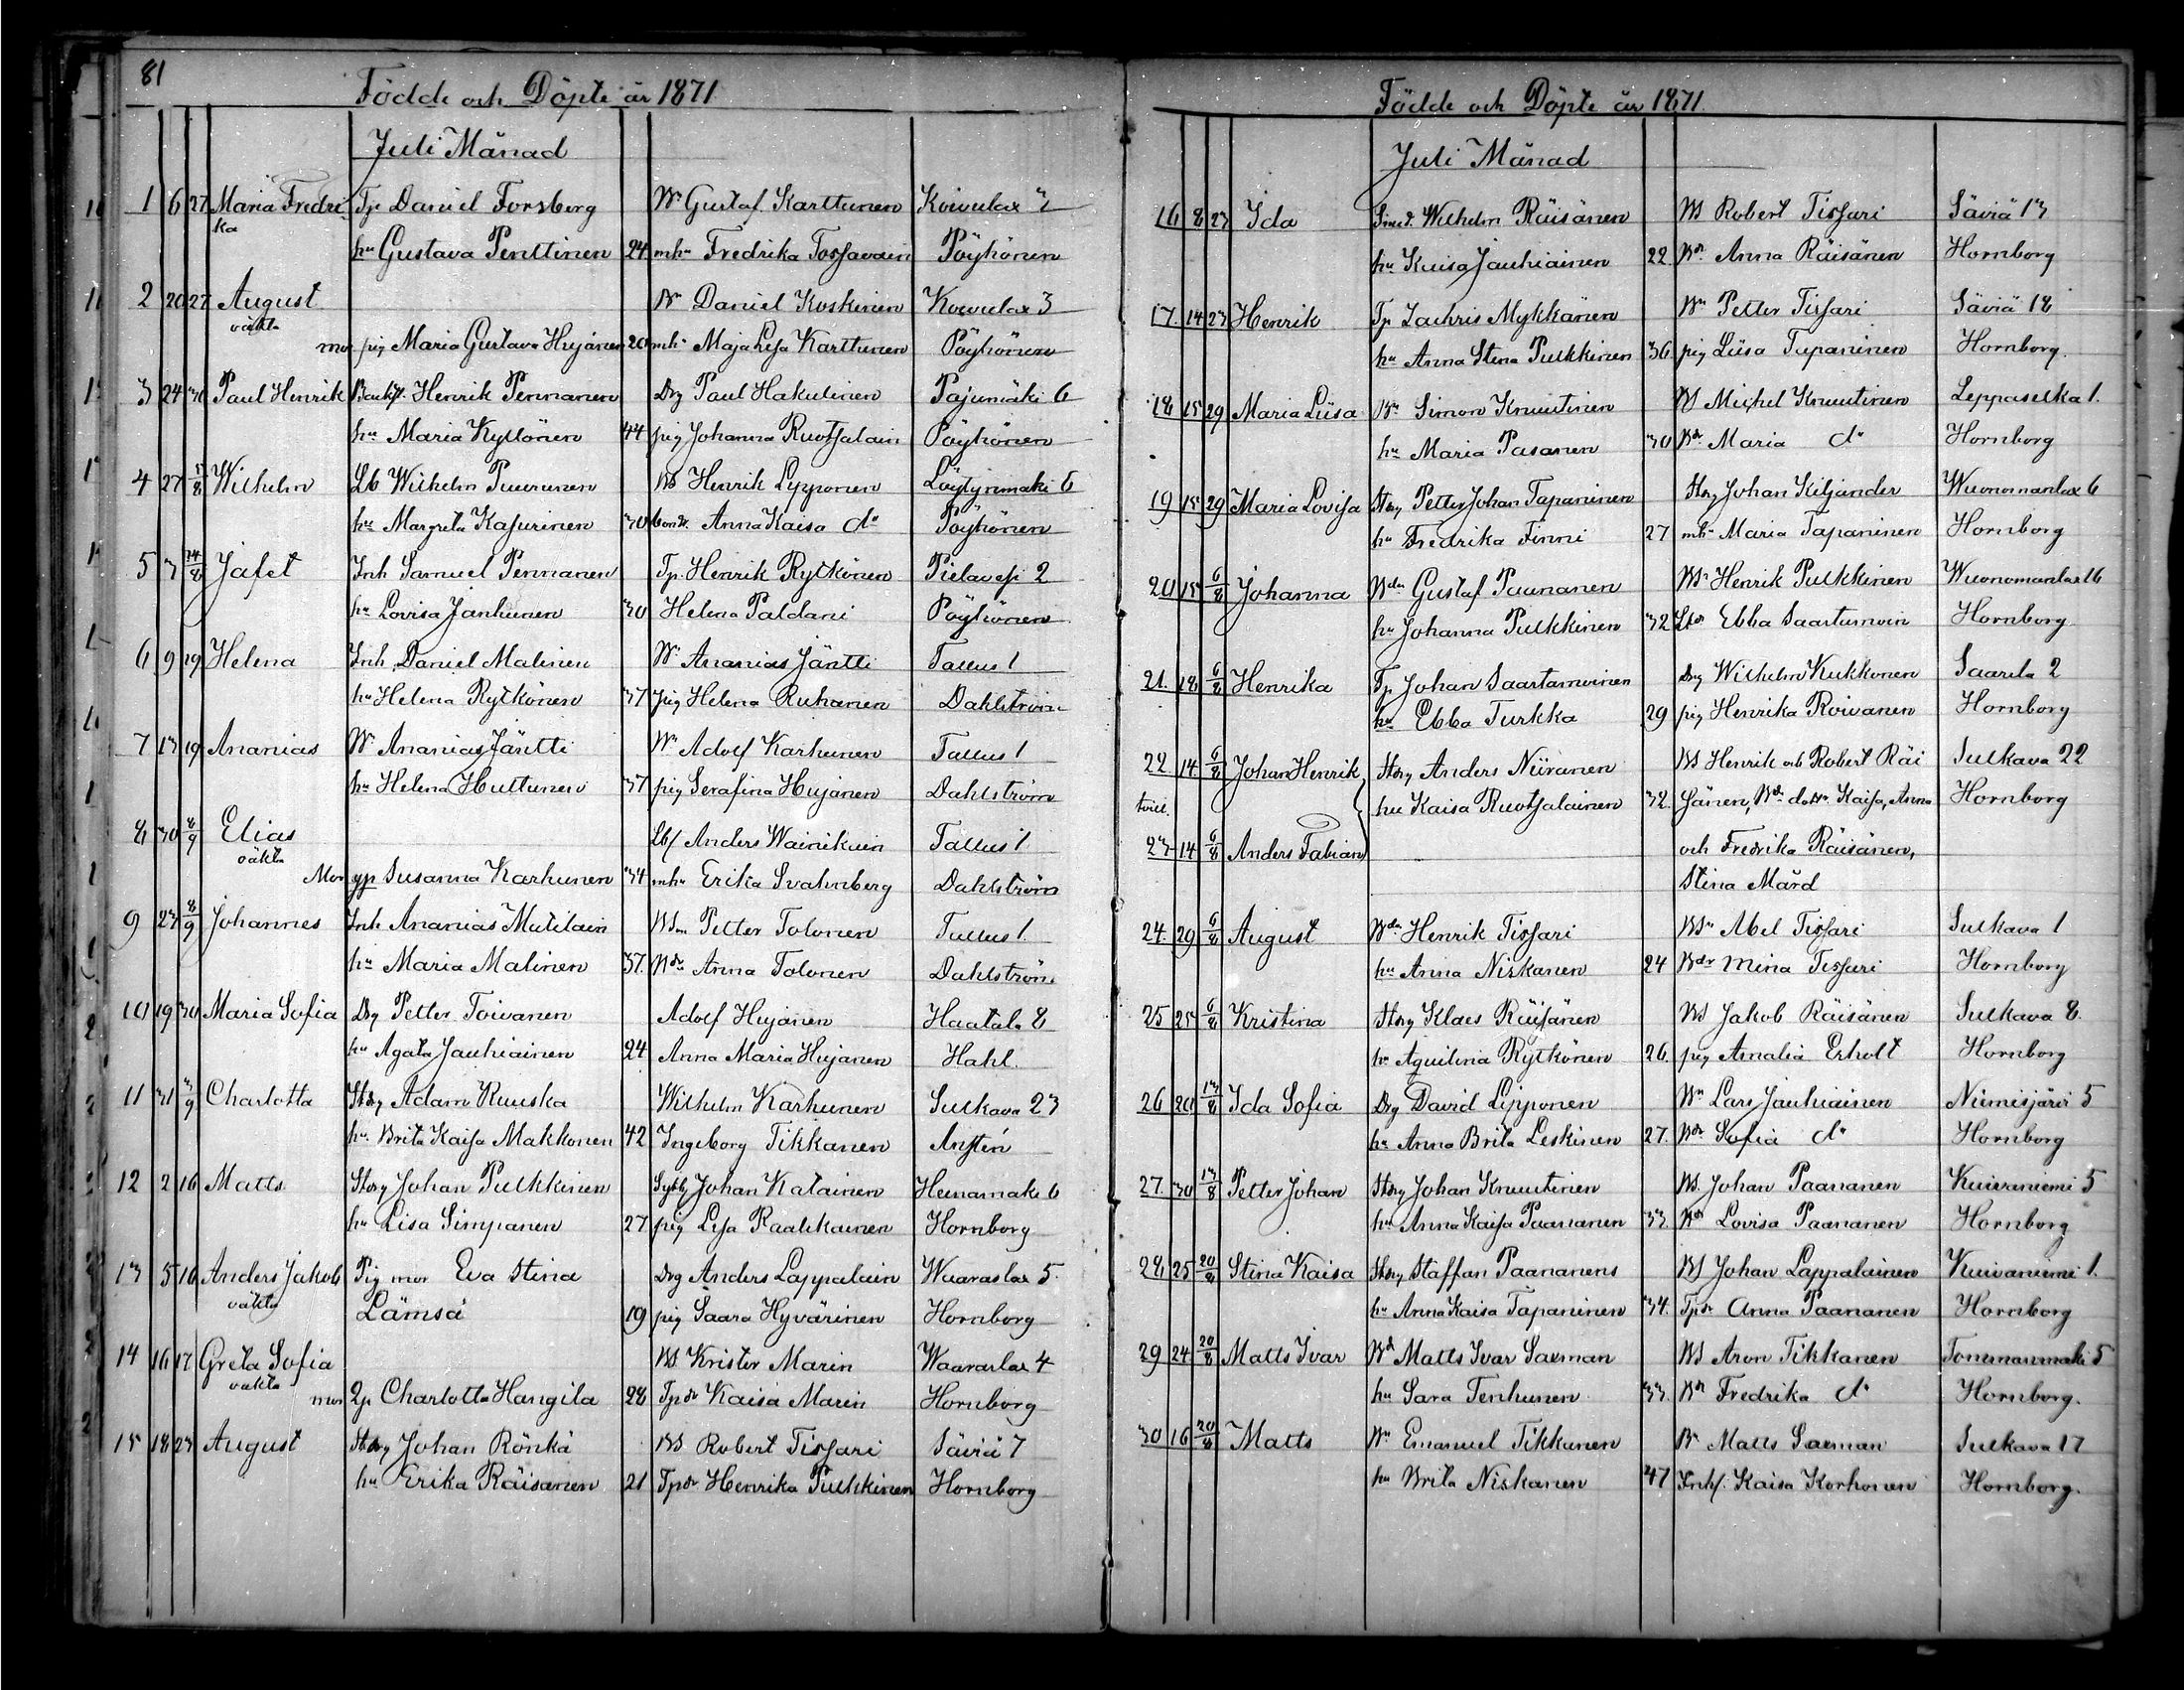 81
Födde och Döpte år 1871
Juli Månad
1 6 27 Maria Fredri Tp Daniel Forsberg Wr Gustaf Karttunen Koivulax 7
ka
hu Gustava Penttinen 24 mhu Fredrika Tossavain Pöyhönen
2 20 27 August Br Daniel Koskinen Koivulax 3
oäkta
mor pig Maria Gustava Hujanen 20 mhu Maja Lisa Karttunen Pöyhönen
3 24 30 Paul Henrik Henrik Pennanen Drg Paul Hakulinen Pajumäki 6
hu Maria Kyllönen 44 pig Johanna Ruotsalain Pöyhönen
4 27 Wilhelm Lb Wilhelm Puurunen BS Henrik Lypponen Löytynmäki 6
hu Margreta Kasurinen 30 Anna Kaisa do Pöyhönen
5 3 Jafet Inh Samuel Pennanen Tp. Henrik Rytkönen Pielavesi 2
hu Lovisa Janhunen 30 Helena Paldani Pöyhönen
6 9 19 Helena Inh Daniel Malinen Wr Ananias Jäntti Tallus 1
hu Helena Rytkönen 37 pig Helena Ruhanen Dahlström
7 13 19 Ananias Wr Ananias Jäntti Wr Adolf Karhunen Tallus 1
hu Helena Huttunen 37 pig Serafina Hujanen Dahlström
8 30 8/9 Elias Lb/ Anders Wainikain Tallus 1
oäkta
Mor gp Susanna Karhunen 34 mhu Erika Svahnberg Dahlström
9 23 8/9 Johannes Inh Ananias Mutilain BSn Petter Tolonen Tallus 1.
hu Maria Malinen 37. Bdr Anna Tolonen Dahlström
10 19 30 Maria Sofia Drg Petter Toivanen Adolf Hujanen Haatala 8
hu Agata Jauhiainen 24 Anna Maria Hujanen Hahl.
11 31 3/9 Charlotta Storg Adam Ruuska Wilhelm Karhunen Sulkava 23
hu Brita Kaisa Makkonen 42 Ingeborg Tikkanen
12 2 16 Matts Storg Johan Pulkkinen Johan Katainen Heinamäki 6
hu Lisa Simpanen 27 pig Lisa Raatikainen Hornborg
13 5 16 Anders Jakob Pig mor Eva Stina Drg Anders Lappalain Wuaraslax 5.
oäkta Lämsä 19 pig Saara Hyvärinen Hornborg
14 16 17 Greta Sofia BS Krister Marin Waaraslax 4
oäkta
mor Qp Charlotta Hangila 28 Tpdr Kaisa Marin Hornborg
15 18 23 August Storg Johan Rönkä BS Robert Tissari Säviä 7
hu Erika Räisänen 21 Tpdr Henrika Pulkkinen Hornborg
Födde och Döpte år 1871.
Juli Månad
16 8 23 Ida Smed. Wilhelm Räisänen BS Robert Tissari Säviä 13
hu Kaisa Jauhiainen 22. Bdr Anna Räisänen Hornborg
17. 14 23 Henrik Tp Zachris Mykkänen Bn Petter Tissari Säviä 18
hu Anna Stina Pulkkinen 36 pig Liisa Tapaninen Hornborg.
18 15 29 Maria Liisa Bn Simon Knuutinen BS Michel Knuutinen Leppäselkä 1.
hu Maria Pasanen 30 Bdr Maria do Hornborg
19 15 29 Maria Lovisa Storg Petter Johan Tapaninen Storg Johan Kiljander Wuonomanlax 6
hu Fredrika Finni 27 mhu Maria Tapaninen Hornborg
20 15 6/8 Johanna Bdn Gustaf Paananen BSn Henrik Pulkkinen Wuonomanlax 16
hu Johanna Pulkkinen 32 Ebba Saastamoin Hornborg
21. 18 6/8 Henrika Tp Johan Saastamoinen Drg Wilhelm Kukkonen Saarela 2
hu Ebba Turkka 29 pig Henrika Roivanen Hornborg
22 14 6/8 Johan Henrik Storg Anders Niiranen BS Henrik och Robert Räi Sulkava 22
tvill. hu Kaisa Ruotsalainen 32. sänen, Bdr Kaisa, Anna Hornborg
23 14 6/8 Anders Fabian och Fredrika Räisänen,
Stina Mård
24. 29 6/8 August Bdn Henrik Tissari BSn Abel Tissari Sulkava 1
hu Anna Niskanen 24 Bdr Mina Tissari Hornborg
25 25 6/8 Kristina Storg Klaes Räisänen BS Jakob Räisänen Sulkava 8.
hu Aquilina Rytkönen 26. pig Amalia Erholt Hornborg
26 20 13/8 Ida Sofia Drg David Lipponen Bn Lars Jauhiainen Niemisjärvi 5
hu Anna Brita Leskinen 27. Bdr Sofia do Hornborg
27. 30 13/8 Petter Johan Storg Johan Knuutinen BS. Johan Paananen Kuivaniemi 5
hu Anna Kaisa Paananen 33. Bdr Lovisa Paananen Hornborg
28 25 20/8 Stina Kaisa Storg Staffan Paananens BS Johan Lappalainen Kuivaniemi 1.
hu Anna Kaisa Tapaninen 34. Tpdr Anna Paananen Hornborg
29 24 20/8 Matts Ivar Bd Matts Ivar Saxman BS Aron Tikkanen Tommanmäki 5
hu Sara Tenhunen 33. Bdr Fredrika do Hornborg.
30 16 20/8 Matts Bn Emanuel Tikkanen Bn Matts Saxman Sulkava 17
hu Brita Niskanen 47 Inh/. Kaisa Korhonen Hornborg.